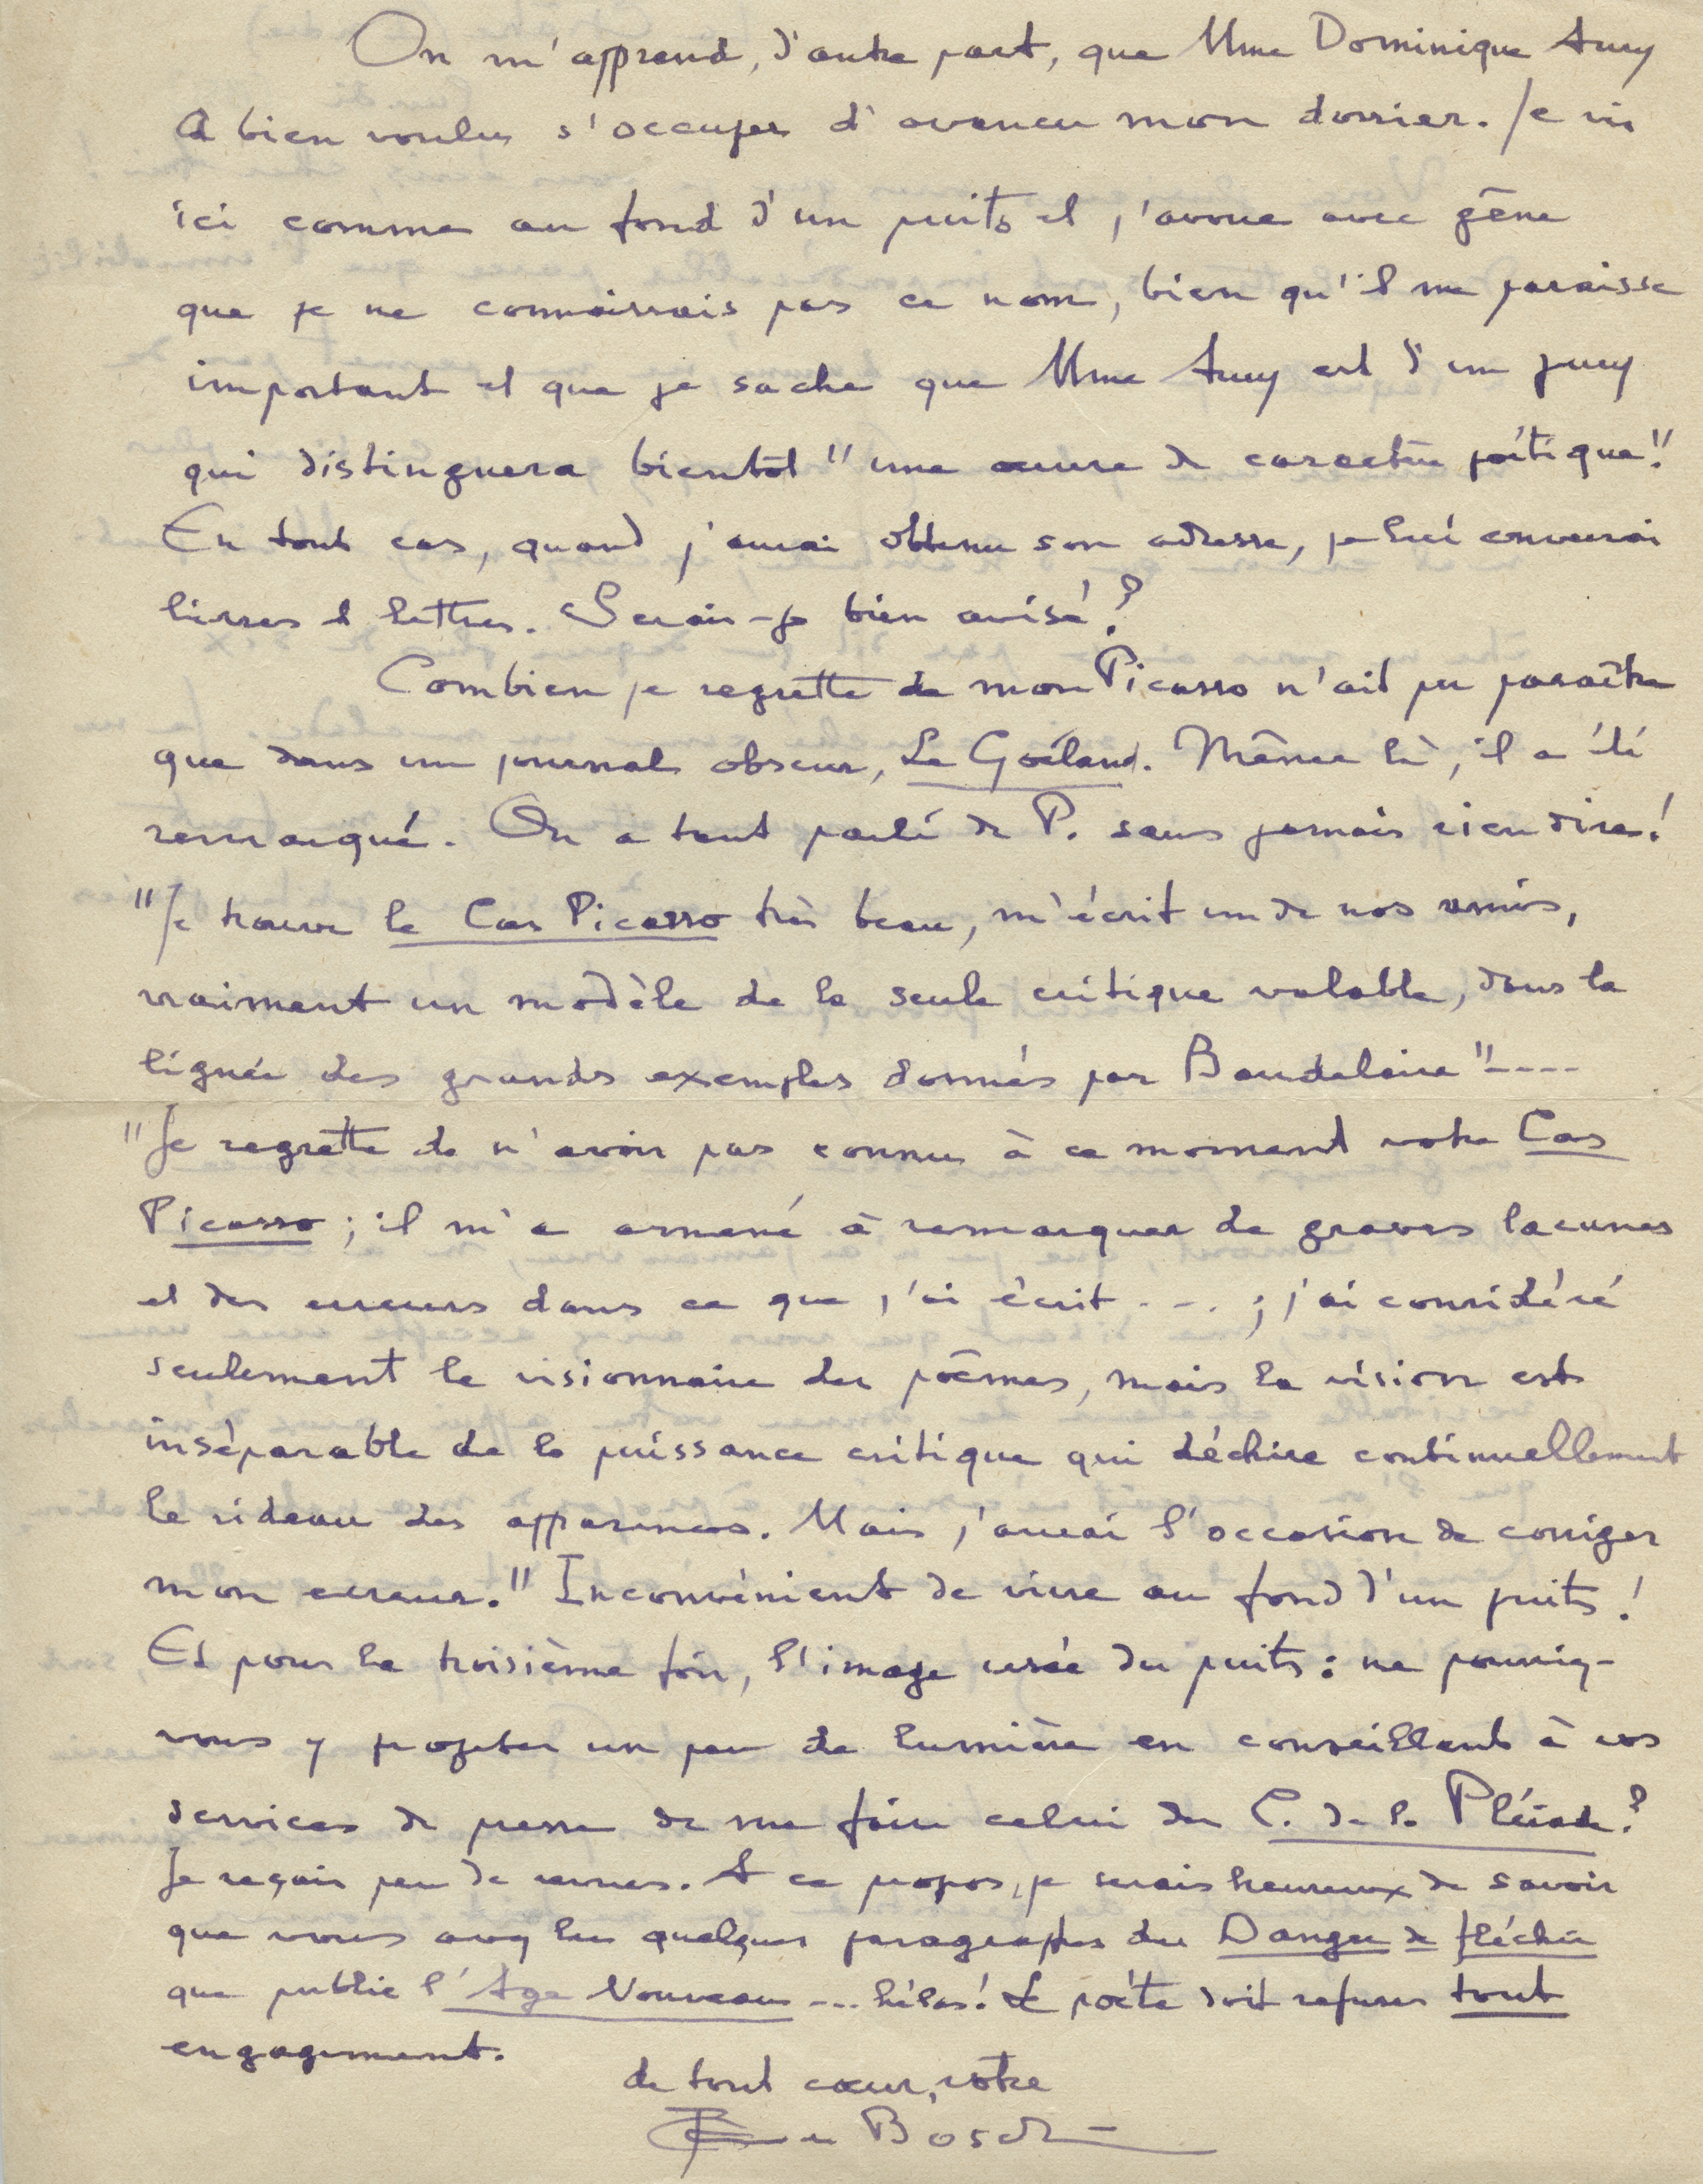 On m'apprend, d'autre part, que Mme Dominique Aury
a bien voulu s'occuper d'avancer mon dossier. Je vis
ici comme au fond d'un puits et j'avoue avec gêne
que je ne connaissais pas ce nom, bien qu'il me paraisse
important et que je sache que Mme Aury est d'un jury
qui distinguera bientôt "une œuvre de caractère poétique".
En tout cas, quand j'aurai obtenu son adresse, je lui enverrai
livres et lettres. Serais-je bien avisé?
Combien je regrette de mon Picasso n'ait pu paraître
que dans un journal obscur, Le Goéland. Même là, il a été
remarqué. On a tant parlé de P. sans jamais rien dire!
"Je trouve le Cas Picasso très beau, m'écrit un de nos amis,
vraiment un modèle de la seule critique valable, dans la
lignée des grands exemples donnés par Baudelaire"....
"Je regrette de n'avoir pas connu à ce moment votre Cas
Picasso; il m'a amené à remarquer de graves lacunes
et des erreurs dans ce que j'ai écrit ...; j'ai considéré
seulement le visionnaire des poèmes, mais la vision est
inséparable de la puissance critique qui déchire continuellement
le rideau des apparences. Mais j'aurai l'occasion de corriger
mon erreur." Inconvénient de vivre au fond d'un puits!
Et pour la troisième fois, l'image usée du puits: ne pourriez-
vous y projeter un peu de lumière en conseillant à vos
services de presse de me faire celui des C. de la Pléiade?
Je reçois peu de revues. A ce propos, je serais heureux de savoir
que vous avez lu quelques paragraphes du Danger de fléchir
que publie l'Age Nouveau ... hélas! Le poète doit refuser tout
engagement.
de tout cœur, votre
Bosch